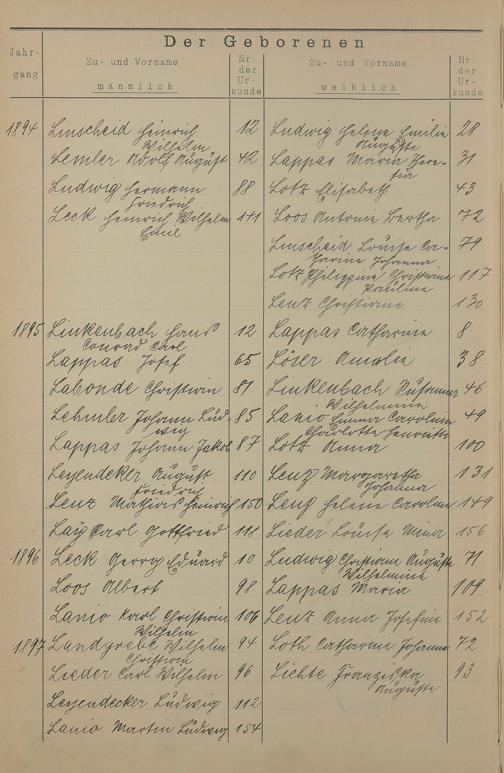 Der Geborenen
Jahr-
gang
Zu- und Vorname
männlich
Nr.
der
Ur-
kunde
Zu- und Vorname
weiblich
Nr.
der
Ur-
kunde
1894 Linscheid Heinrich 12 Ludwig Helene Emilie 28
Wilhelm Auguste
Lemler Adolf August 42 Lappas Maria There- 31
sia
Ludwig Hermann 88 Lotz Elisabeth 43
Friedrich
Leck Heinrich Wilhelm 141 Loos Antonie Bertha 72
Emil
Linscheid Louise Ca- 79
tharine Johanna
Lotz Philippine Christiane 117
Pauline
Lenz Christiane 130
1895 Linkenbach Hans 12 Lappas Catharine 8
Conrad Carl
Lappas Josef 65 Löser Amalie 38
Labonde Christian 81 Linkenbach Susanna 46
Wilhelmine
Lehmler Johann Lud- 85 Lanio Emma Caroline 49
wig Charlotte Henriette
Lappas Johann Jakob 87 Lotz Anna 100
Leyendeker August 110 Lenz Margaretha 131
Friedrich Johanna
Lenz Mathias Heinrich 150 Leng Helene Caroline 149
Lay Carl Gottfried 111 Lieder Louise Minna 156
1896 Leck Georg Eduard 10 Ludwig Christiane Auguste 71
Wilhelmine
Loos Albert 98 Lappas Maria 109
Lanio Karl Christian 106 Lenz Anna Josefine 152
Wilhelm
1897 Landgrebe Wilhelm 94 Loth Catharine Johanna 72
Christian
Lieder Carl Wilhelm 96 Lichte Franziska 93
Auguste
Leyendecker Ludwig 112
Lanio Martin Ludwig 154